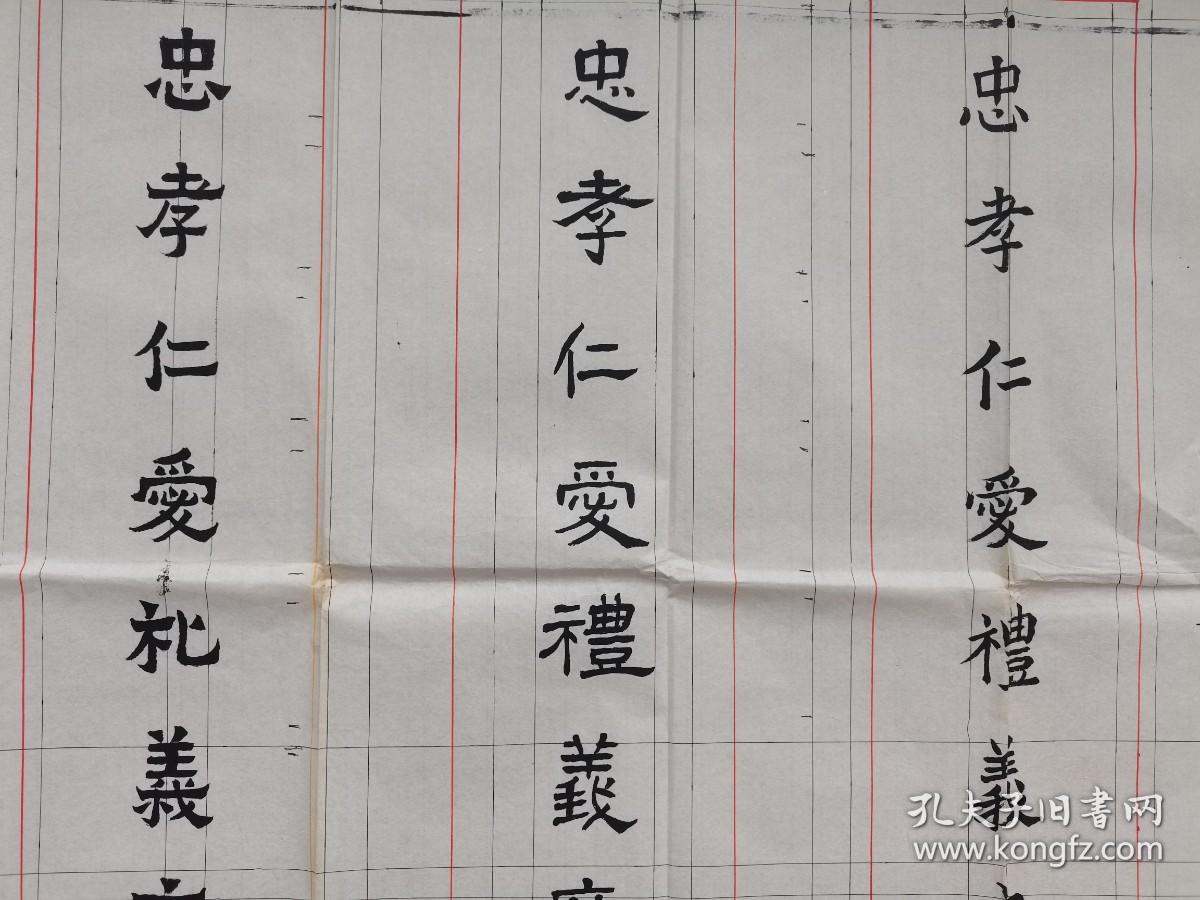 忠孝仁愛禮義
忠孝仁愛禮義
忠孝仁愛礼義
孔夫子旧書网
www.kongfz.com